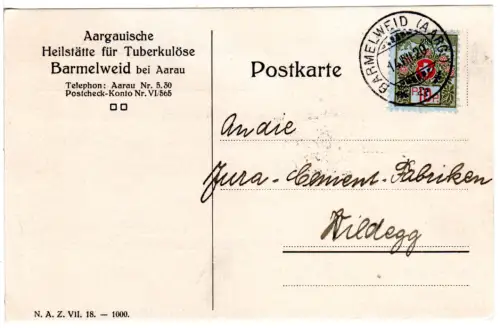 Aargauische
Heilstätte für Tuberkulöse
Barmelweid bei Aarau
Telephon: Aarau Nr. 5.30
Postcheck-Konto Nr. VI/565
Postkarte
BARMELWEID (AARG.)
An die
Jura-Cement-Fabriken
Wildegg
N. A. Z. VII. 18. — 1000.